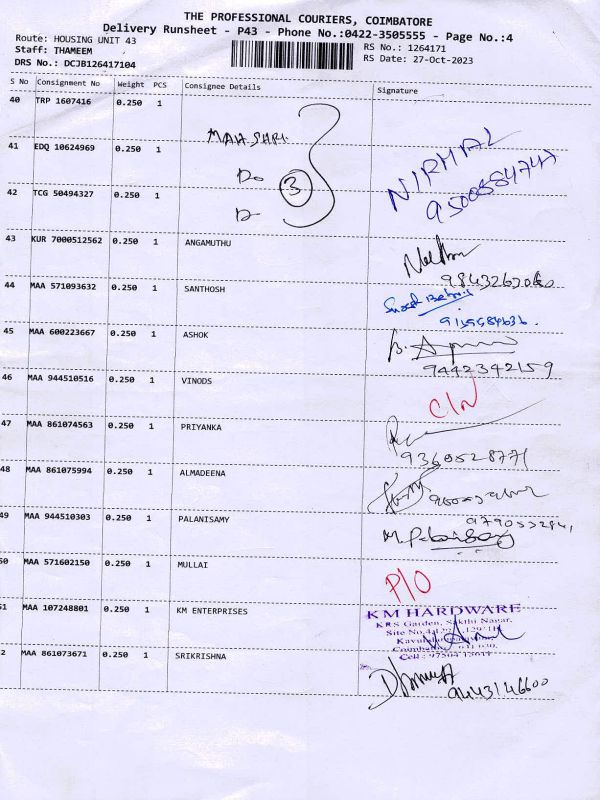 THE PROFESSIONAL COURIERS, COIMBATORE
Delivery Runsheet - P43 - Phone No.:0422-3505555 - Page No.:4
Route: HOUSING UNIT 43
Staff: THAMEEM
DRS No.: DCJB126417104
RS No.: 1264171
RS Date: 27-Oct-2023
S No Consignment No Weight PCS Consignee Details Signature
40 TRP 1607416 0.250 1
41 EDQ 10624969 0.250 1 MAHASHRI
3
NIRMAL
42 TCG 50494327 0.250 1
43 KUR 7000512562 0.250 1 ANGAMUTHU
44 MAA 571093632 0.250 1 SANTHOSH
45 MAA 600223667 0.250 1 ASHOK
9442342159
46 MAA 944510516 0.250 1 VINODS
C/N
47 MAA 861074563 0.250 1 PRIYANKA
9360528771
48 MAA 861075994 0.250 1 ALMADEENA
49 MAA 944510303 0.250 1 PALANISAMY
50 MAA 571602150 0.250 1 MULLAI
P/O
51 MAA 107248801 0.250 1 KM ENTERPRISES
KM HARDWARE
KRS Garden, Sakthi Nagar,
Site No.
2 MAA 861073671 0.250 1 SRIKRISHNA
9443146600